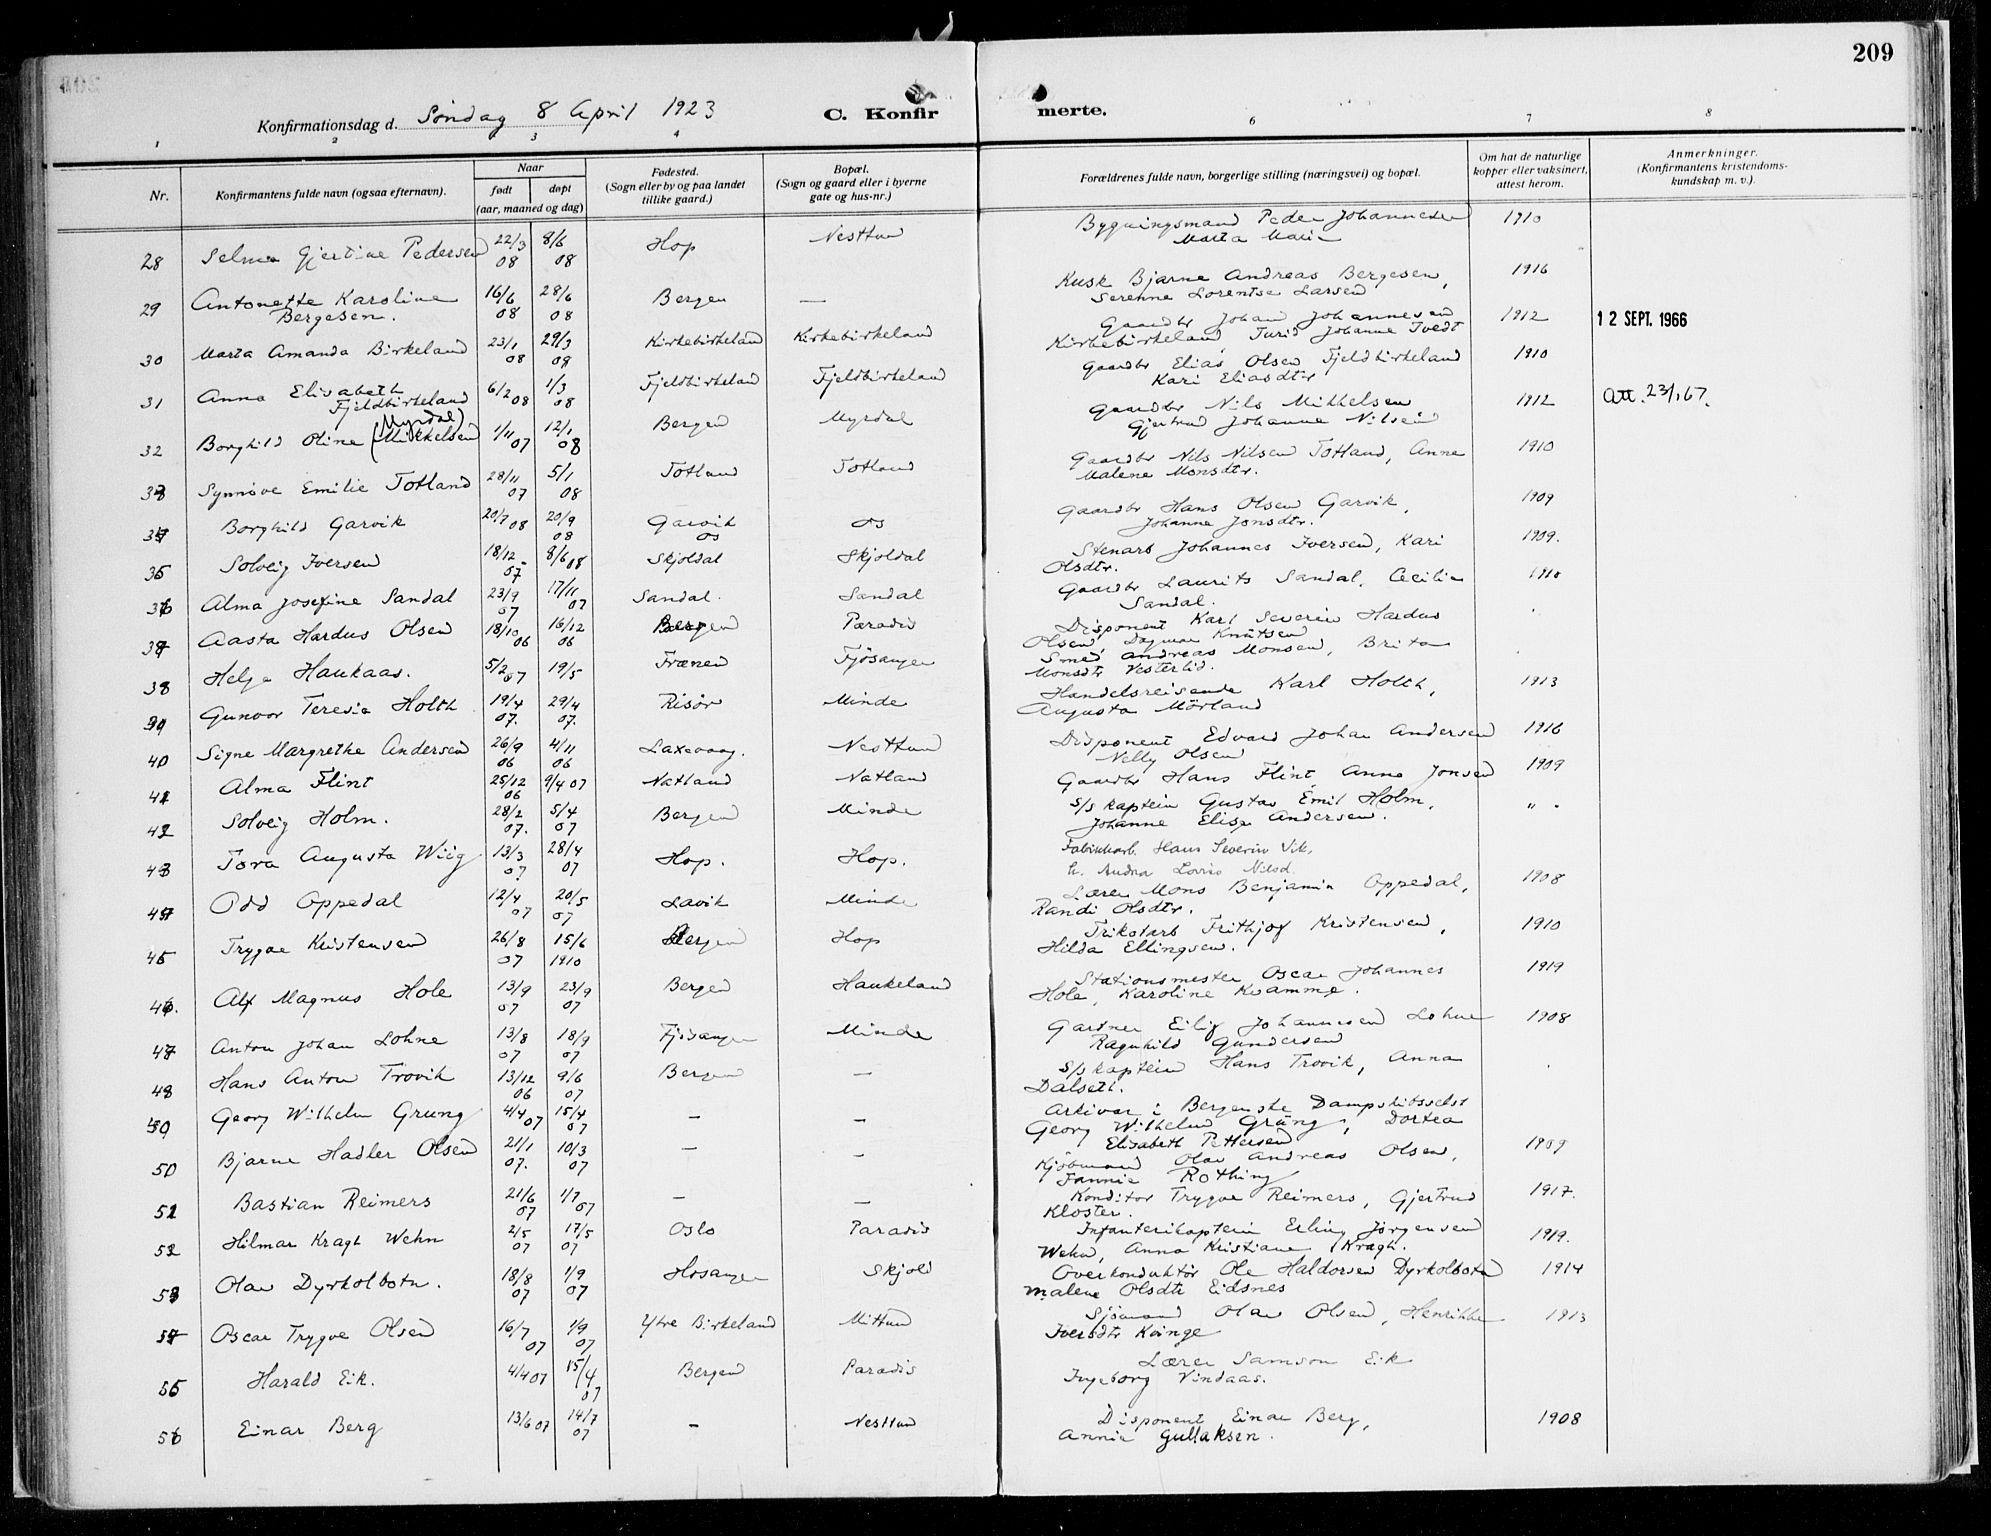 209
Konfirmationsdag d. Søndag 8 April 1923
C. Konfir merte.
1 2 3 4 6 7 8
Nr. Konfirmantens fulde navn (ogsaa efternavn). Naar født døpt (aar, maaned og dag) Fødested. (Sogn eller by og paa landet tillike gaard.) Bopæl. (Sogn og gaard eller i byerne gate og hus-nr.) Forældrenes fulde navn, borgerlige stilling (næringsvei) og bopæl. Om hat de naturlige kopper eller vaksinert, attest herom. Anmerkninger. (Konfirmantens kristendoms-kundskap m. v.).
28 Selma Gjertine Pedersen 22/3 08 8/6 08 Hop Nesttun Bygningsmand Peder Johannesen Marta Marie 1910
29 Antonette Karoline Bergesen. 16/6 08 28/6 08 Bergen — Kusk Bjarne Andreas Bergesen, Serenne Lorentse Larsen 1916
30 Marta Amanda Birkeland 23/1 08 29/3 08 Kirkebirkeland Kirkebirkeland Gaardbr Johan Johannesen Kirkebirkeland Turid Johanne Tvedt 1912 12 SEPT. 1966
31 Anna Elisabeth Fjeldbirkeland 6/2 08 1/3 08 Fjeldbirkeland Fjeldbirkeland Gaardbr Elias Olsen Fjeldbirkeland Kari Eliasdtr 1910
32 Borghild Oline (Mikkelsen Myrdal) 1/11 07 12/1 08 Bergen Myrdal Gaardbr Nils Mikkelsen Gjertrud Johanne Nilsen 1912 Att. 23/1 67.
33 Synnøve Emilie Totland 28/11 07 5/1 08 Totland Totland Gaardbr Nils Nilsen Totland, Anne Malene Monsdtr. 1910
34 Borghild Garvik 20/7 08 20/9 08 Garvik Os Os Gaardbr Hans Olsen Garvik, Johanne Jonsdtr. 1909
35 Solveig Iversen 18/12 07 8/6 08 Skjoldal Skjoldal Stenarb Johannes Iversen, Kari Olsdtr. 1909.
36 Alma Josefine Sandal 23/9 07 17/11 07 Sandal. Sandal Gaardbr Laurits Sandal, Cecilie Sandal. 1910
37 Aasta Hardus Olsen 18/10 06 16/12 06 Bergen Paradis Disponent Karl Severin Hardus Olsen, Dagmar Knutsen
38 Helga Haukaas. 5/2 07 19/5 Frænen Fjøsanger Smed Andreas Monsen, Brita Monsdtr Vesterlid.
39 Gunvor Teresia Holth 19/4 07. 29/4 07. Risør Minde Handelsreisende Karl Holth, Augusta Mörland 1913
40 Signe Margrethe Andersen 26/9 06 4/11 06 Laxevaag. Nesttun Disponent Edvard Johan Andersen Nelly Olsen 1916
41 Alma Flint 25/12 06 9/4 07 Natland Natland Gaardbr Hans Flint Anna Jonsen 1909
42 Solveig Holm. 28/2 07. 5/4 07 Bergen Minde S/s kaptein Gustav Emil Holm, Johanne Elise Andersen. " .
43 Tora Augusta Wiig 13/3 07 28/4 07 Hop. Hop. Fabrikkarb. Hans Severin Vik, h. Andrea Lovise Nilsd.
44 Odd Oppedal 12/4 07 20/5 07 Lavik Minde Lærer Mons Benjamin Oppedal, Randi Olsdtr. 1908
45 Trygve Kristensen 26/8 07 15/6 1910 Bergen Hop Trikotarb Frithjof Kristensen, Hilda Ellingsen. 1910
46. Alf Magnus Hole 13/9 07 23/9 07 Bergen Haukeland Stationsmester Oscar Johannes Hole, Karoline Kvamme. 1919
47 Anton Johan Lohne 13/8 07 18/9 07 Fjøsanger Minde Gartner Eilif Johannesen Lohne Ragnhild Gundersen 1908
48 Hans Anton Trovik 13/12 06 9/6 07 Bergen — S/s kaptein Hans Trovik, Anna Dalseth.
Georg Wilhelm Grung 4/4 07 15/4 07 — — Arkivar i Bergenske Dampskibsselsk Georg Wilhelm Grüng, Dortea Elisabeth Pettersen
50 Bjarne Hadler Olsen 21/1 07. 10/3 07 — — Kjöbmand Olav Andreas Olsen, Fannie Röthing 1909
51 Bastian Reimers 21/6 07 1/7 07 — — Konditor Trygve Reimers, Gjertrud Kloster. 1917.
52 Hilmar Kragh Wehn 2/5 07 17/5 07 Oslo Paradis Infanterikaptein Erling Jörgensen Wehn, Anna Kristiane Kragh. 1919.
53 Olav Dyrkolbotn. 18/8 07 1/9 07 Hosanger Skjold Overkonduktör Ole Haldorsen Dyrkolbotn Malene Olsdtr Eidsnes 1914
54 Oscar Trygve Olsen 16/7 07 1/9 07 Ytre Birkeland Mittun Sjömand Olav Olsen, Henrikke Iversdtr Kvinge 1913
55 Harald Eik. 4/4 07 15/4 07 Bergen Paradis Lærer Samson Eik Ingeborg Vindaas.
56 Einar Berg 13/6 07 14/7 07 — Nesttun Disponent Einar Berg, Annie Gullaksen. 1908